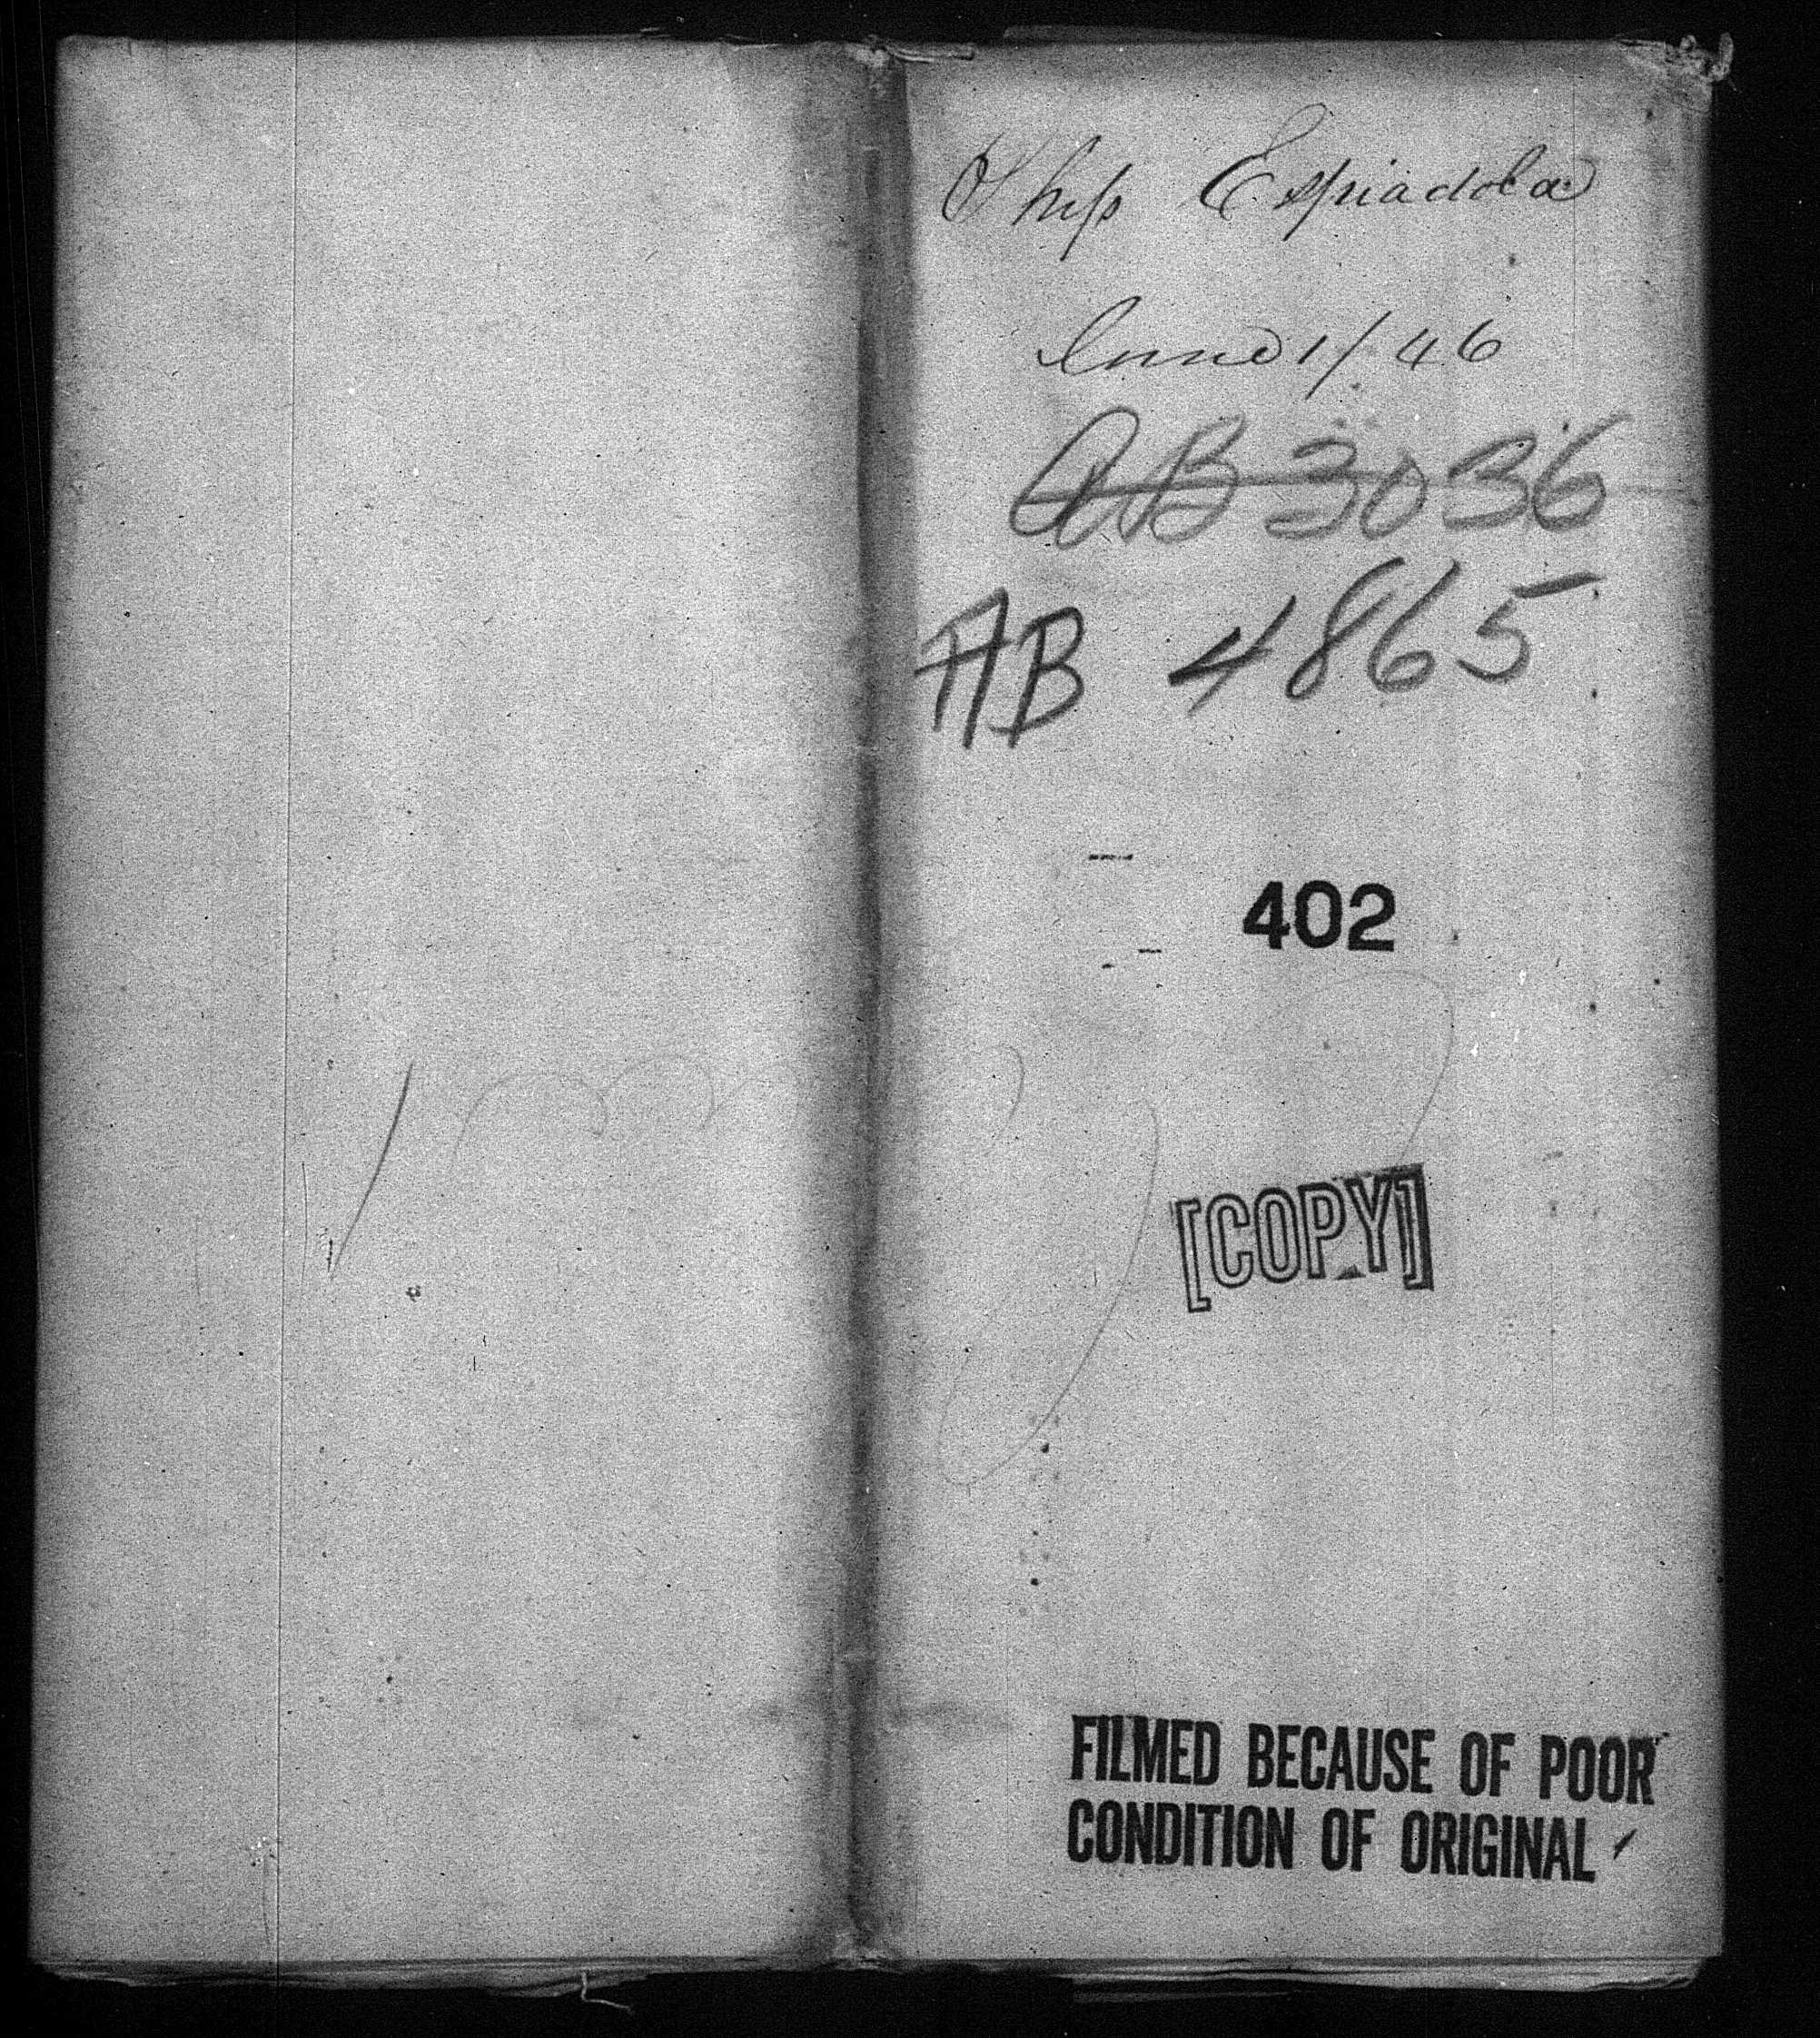 Ship Espindola
June 1/46
AB 3036
AB 4865
402
[COPY]
FILMED BECAUSE OF POOR
CONDITION OF ORIGINAL